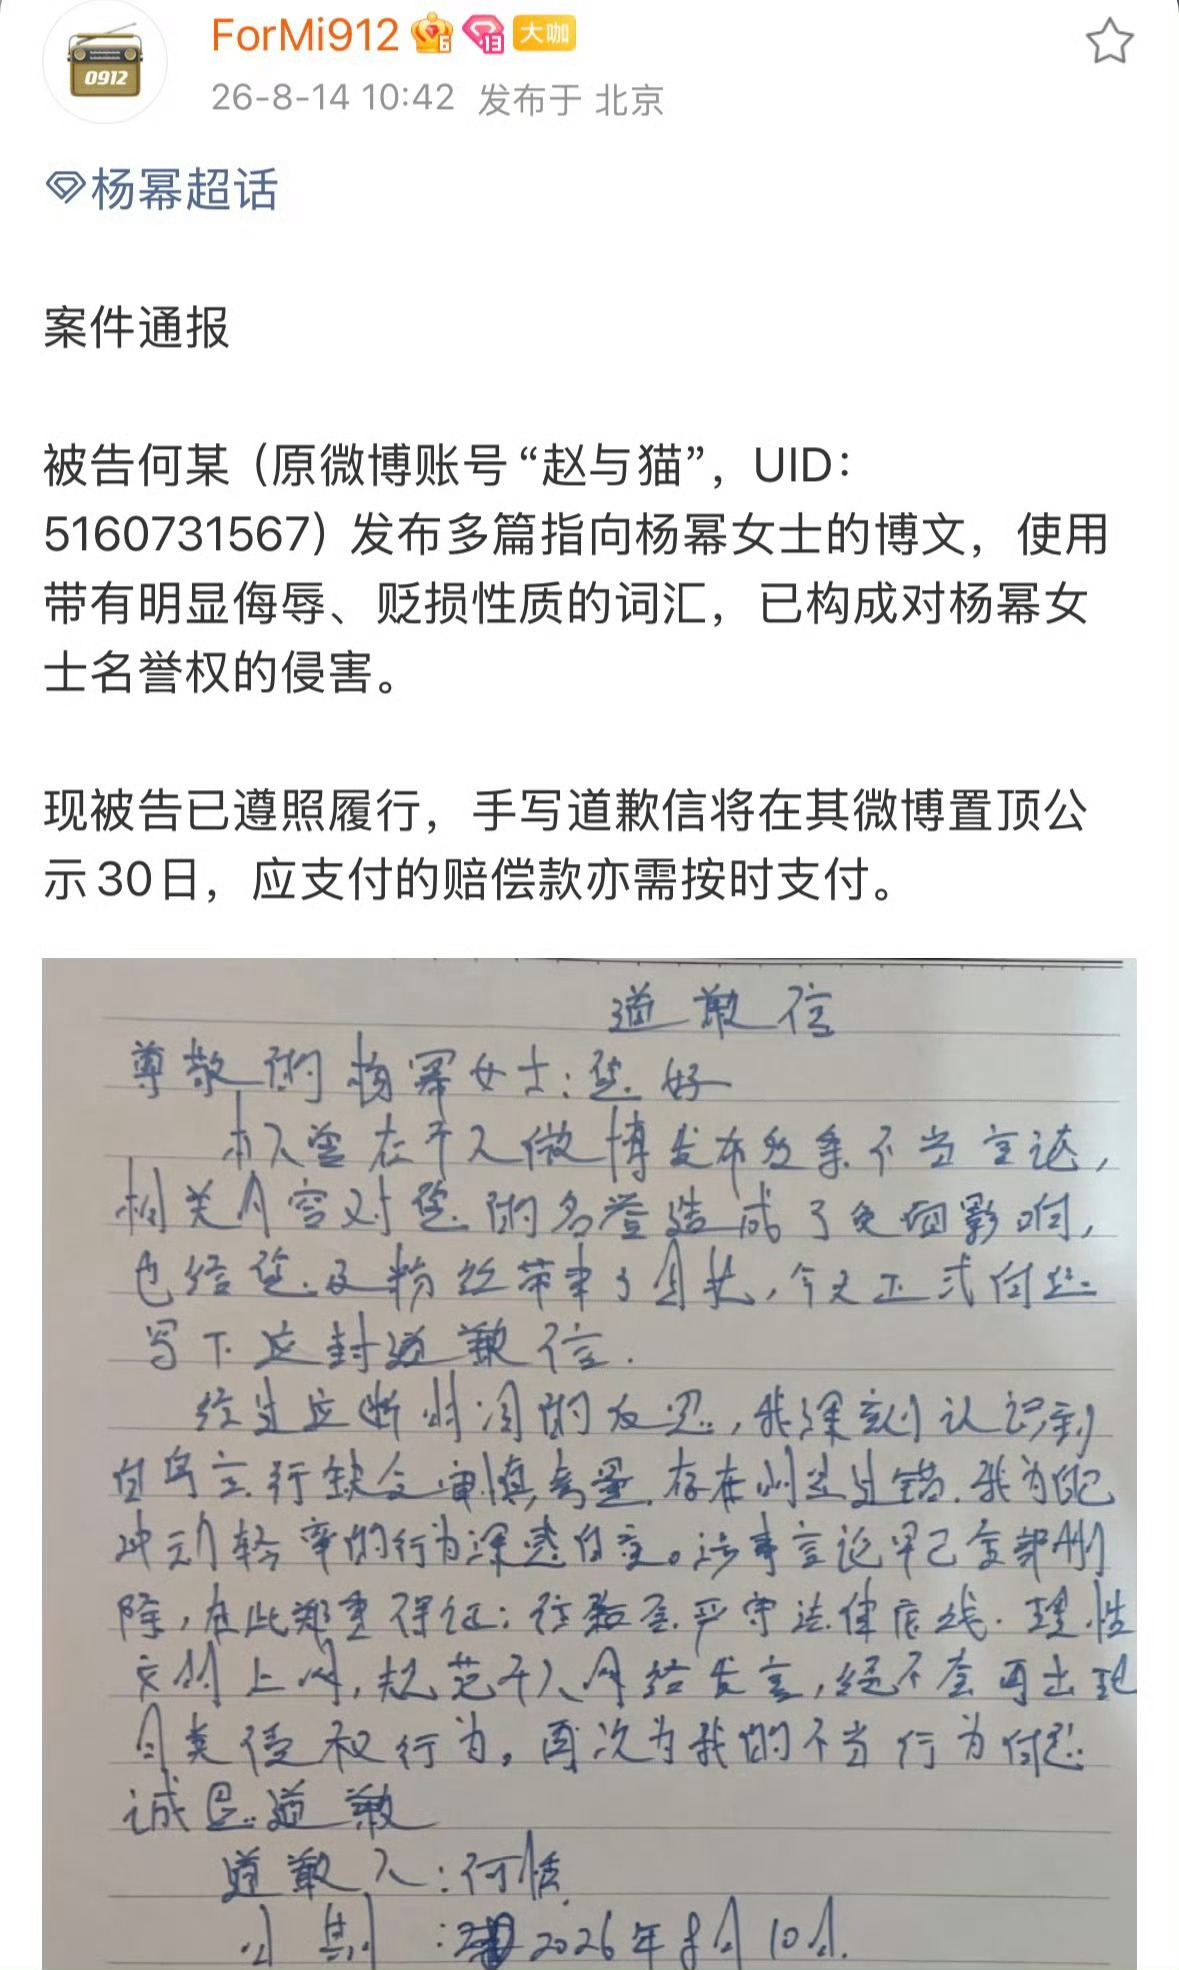 0912
ForMi912 6 13 大咖
26-8-14 10:42 发布于 北京
杨幂超话
案件通报
被告何某（原微博账号“赵与猫”，UID：
5160731567）发布多篇指向杨幂女士的博文，使用
带有明显侮辱、贬损性质的词汇，已构成对杨幂女
士名誉权的侵害。
现被告已遵照履行，手写道歉信将在其微博置顶公
示30日，应支付的赔偿款亦需按时支付。
道歉信
尊敬的杨幂女士：您好
本人曾在个人微博发布多条不当言论，
相关内容对您的名誉造成了负面影响，
也给您及粉丝带来了困扰，今天正式向您
写下这封道歉信.
经过这断时间的反思，我深刻认识到
自身言行缺乏审慎考量.存在明显过错.我为自己
冲动轻率的行为深感自责。涉事言论早已全部删
除，在此郑重保证：往后严守法律底线.理性
文明上网，规范个人网络发言，绝不会再出现
同类侵权行为。再次为我的不当行为向您
诚恳道歉
道歉人：何
日期：2026年8月10日.